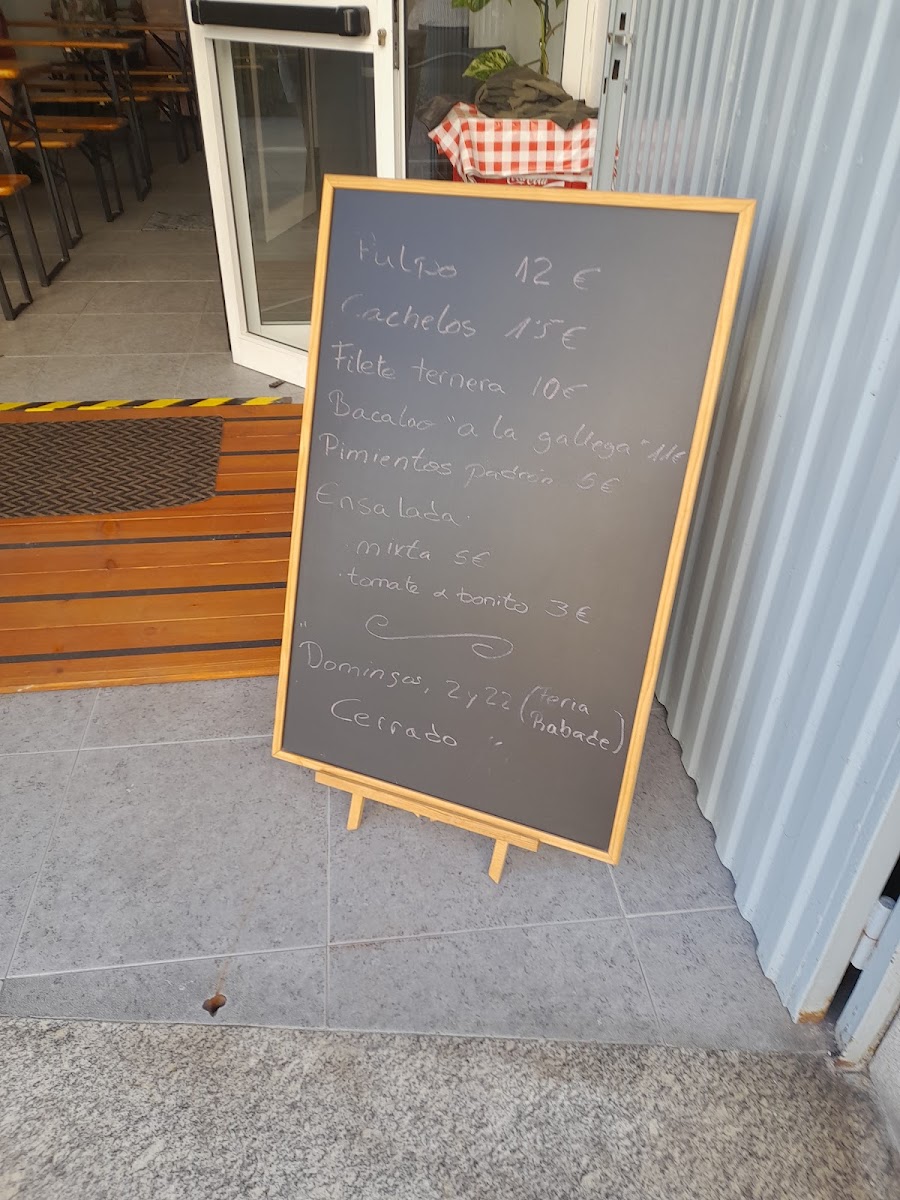 Pulpo 12 €
Cachelos 1'5 €
Filete ternera 10€
Bacalao "a la gallega" 11€
Pimientos padrón 5€
Ensalada.
· mixta 5€
· tomate & bonito 3€
"Domingos, 2 y 22 (feria
Rabade)
Cerrado "